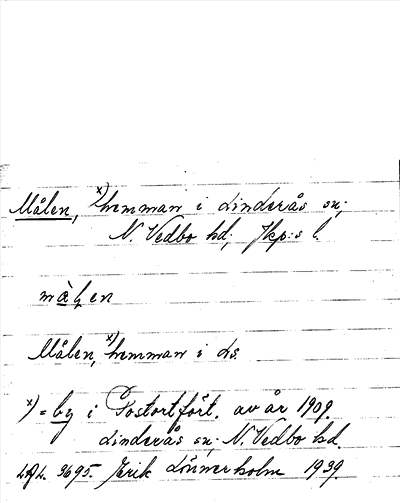 Målen, x) hemman i Linderås sn;
N. Vedbo hd, Jkp:s l.
màlen
Målen, x) hemman i Ls.
x) = by i Postortfört. av år 1909.
Linderås sn; N. Vedbo hd.
3695. Erik Lönnerholm 1939.